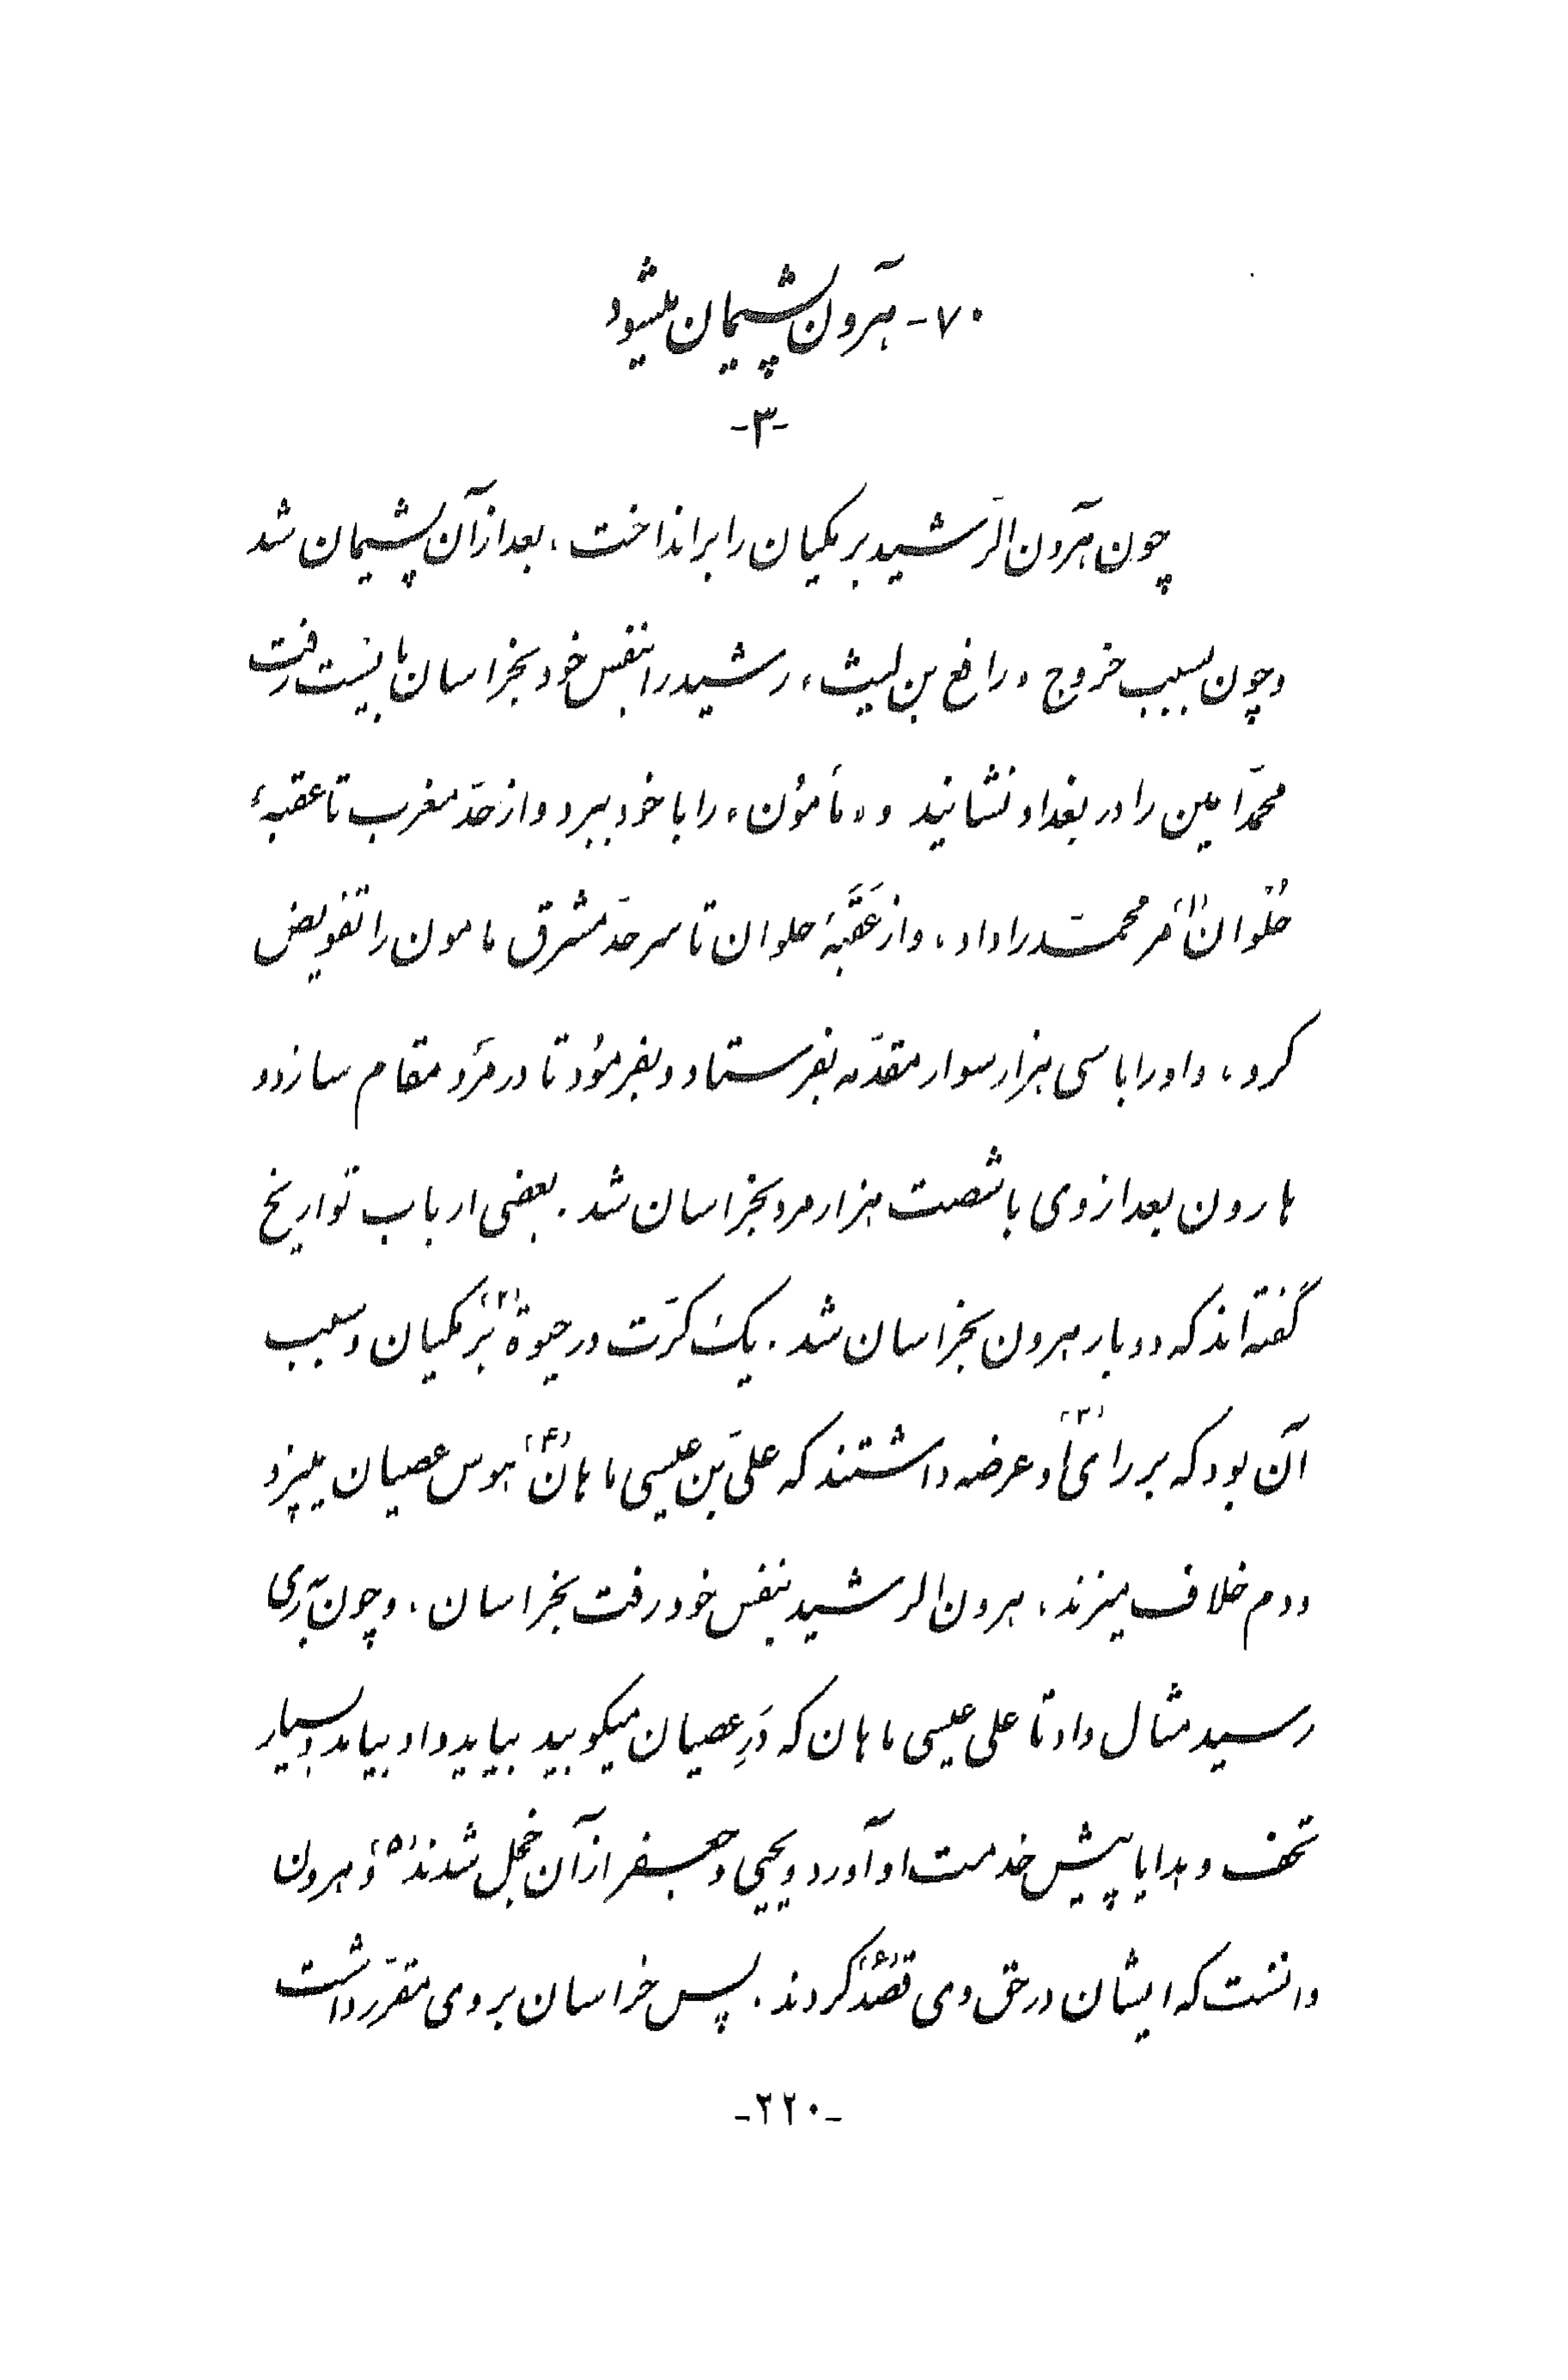 ۷۰- هرون پشیمان میشود
-۳-
چون هرون الرّشید برمکیان را برانداخت، بعد از آن پشیمان شد
و چون بسبب خروج «رافع بن لیث» رشید را بنفس خود بخراسان بایست رفت
محمّد امین را در بغداد نشانید و «مأمون» را با خود ببرد و از حدّ مغرب تا عقبهٔ
حُلوان(۱) مر محمّد را داد، و از عَقَبهٔ حلوان تا سرحدّ مشرق مامون را تفویض
کرد، و او را با سی هزار سوار مقدّمه بفرستاد و بفرمود تا در مَرو مقام سازد و
هارون بعد از وی با شصت هزار مرد بخراسان شد. بعضی ارباب تواریخ
گفته‌اند که دو بار هرون بخراسان شد. یک کرّت در حیوة(۲) برمکیان و سبب
آن بود که بر رای(۳) او عرضه داشتند که علی بن عیسی ماهان(۴) هوس عصیان میپزد
و دم خلاف میزند، هرون الرشید بنفس خود رفت بخراسان، و چون بری
رسید مثال داد تا علی عیسی ماهان که دَرِ عصیان میکوبید بیاید و او بیامد و بسیار
تحف و هدایا پیش خدمت او آورد و یحیی و جعفر از آن خجل شدند(۵) و هرون
دانست که ایشان در حق وی قصد(۶) کردند. پس خراسان بر وی مقرّر داشت
-۲۲۰-